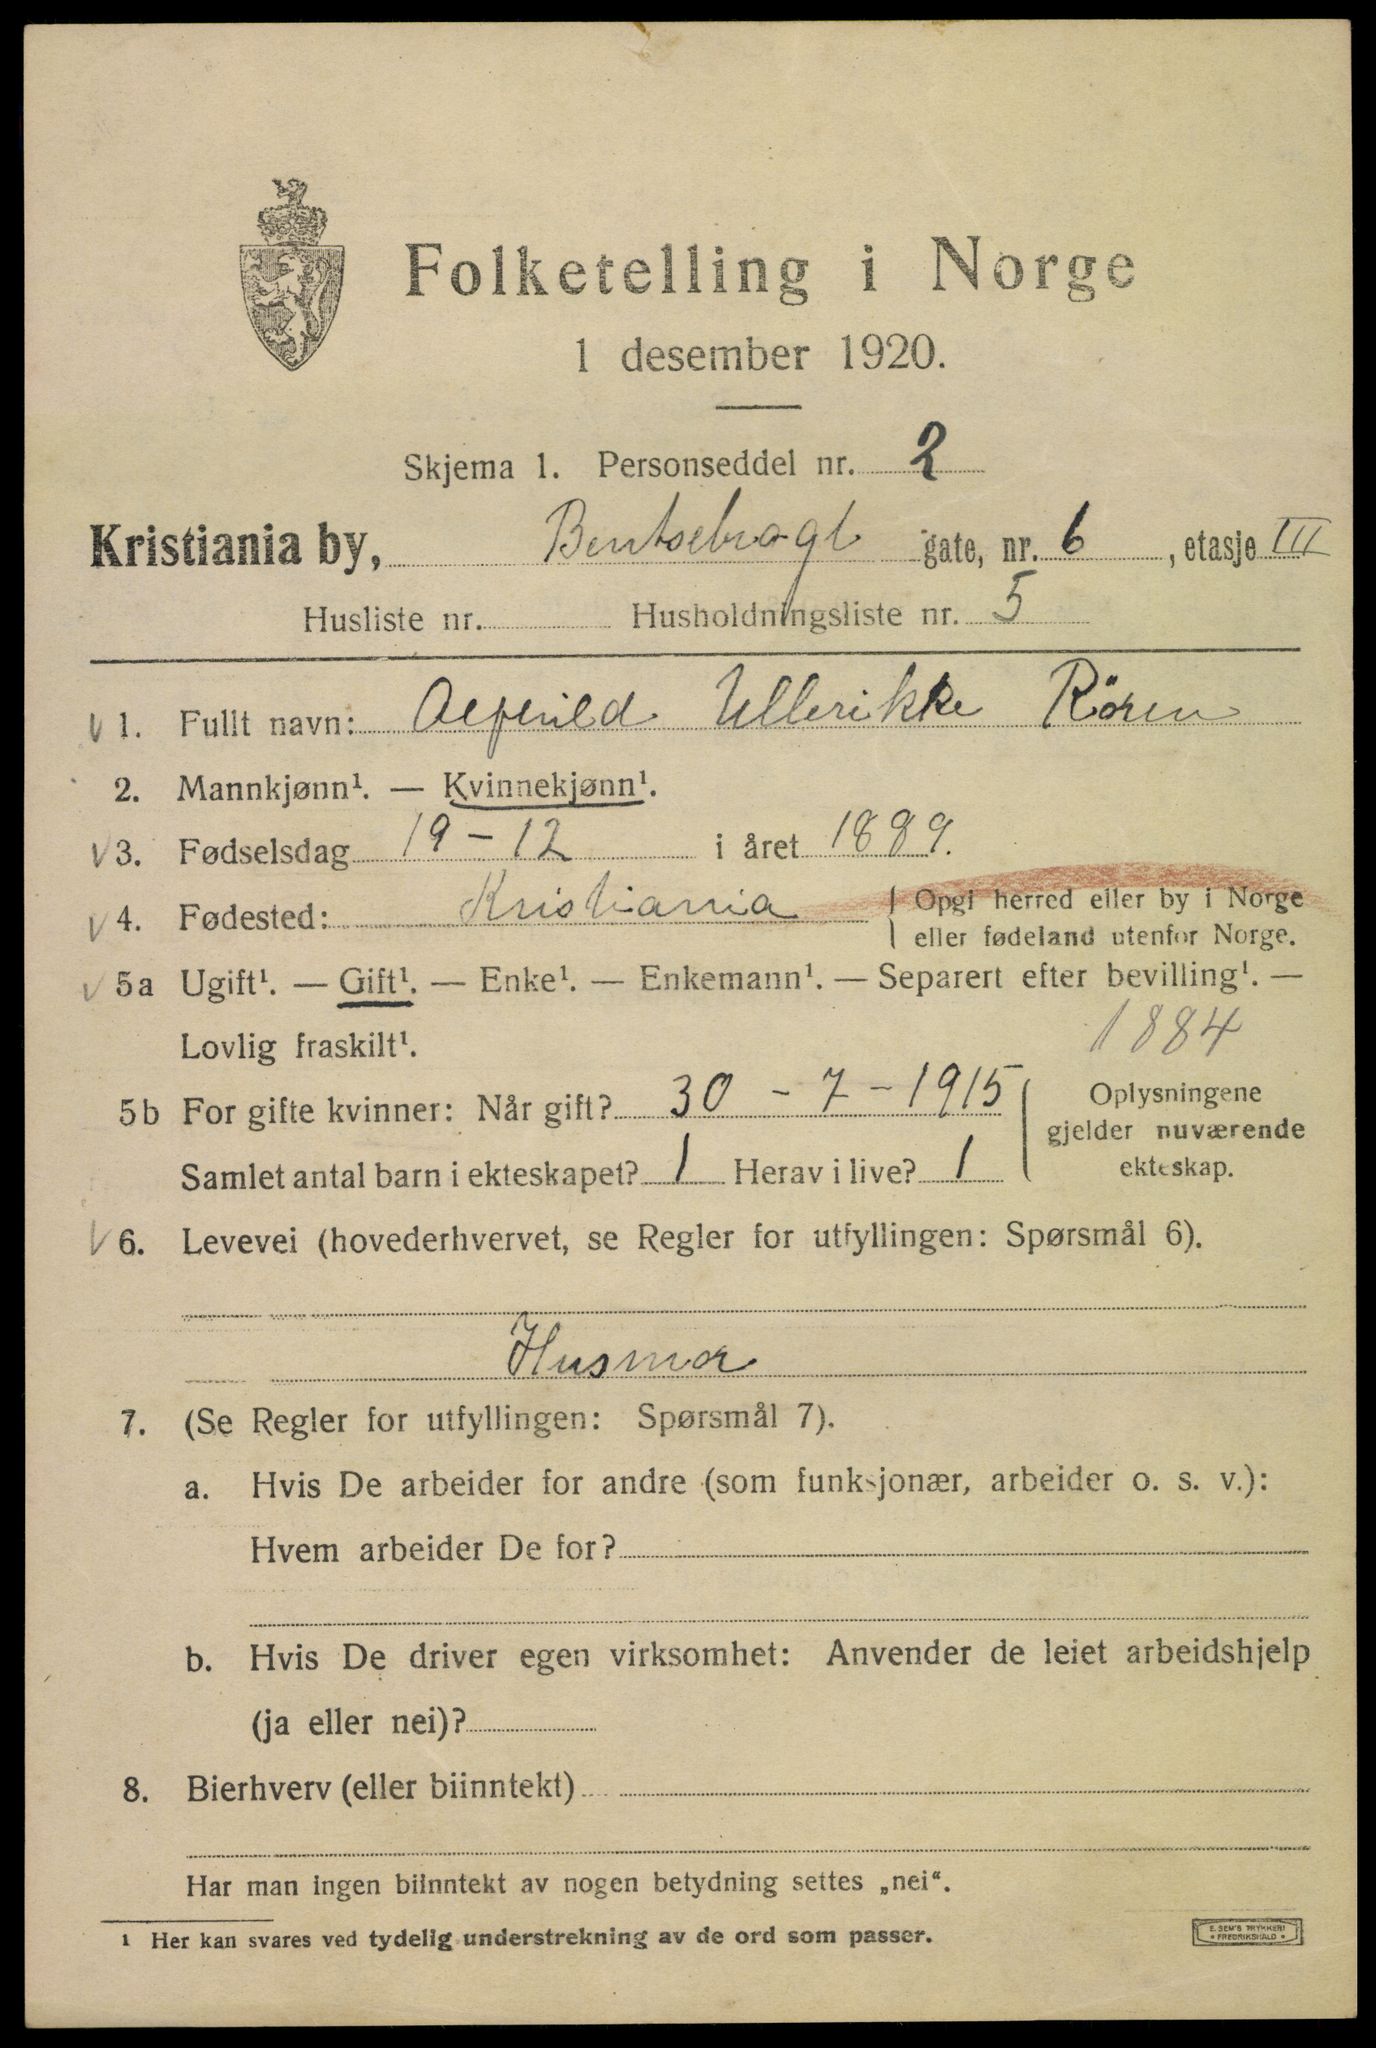 Folketelling i Norge
1 desember 1920.
Skjema 1. Personseddel nr. 2
Kristiania by, Bentsebrogt gate, nr. 6, etasje III
Husliste nr. Husholdningsliste nr. 5
V 1. Fullt navn: Ullerikke Røren
2. Mannkjønn¹. — Kvinnekjønn¹.
V 3. Fødselsdag 19 - 12 i året 1889.
V 4. Fødested: Kristiania { Opgi herred eller by i Norge
eller fødeland utenfor Norge.
V 5a Ugift¹. — Gift¹. — Enke¹. — Enkemann¹. — Separert efter bevilling¹. —
Lovlig fraskilt¹. 1884
5b For gifte kvinner: Når gift? 30 - 7 - 1915 { Oplysningene
gjelder nuværende
Samlet antal barn i ekteskapet? 1 Herav i live? 1 ekteskap.
V 6. Levevei (hovederhvervet, se Regler for utfyllingen: Spørsmål 6).
Husmor
7. (Se Regler for utfyllingen: Spørsmål 7).
a. Hvis De arbeider for andre (som funksjonær, arbeider o. s. v.):
Hvem arbeider De for?
b. Hvis De driver egen virksomhet: Anvender de leiet arbeidshjelp
(ja eller nei)?
8. Bierhverv (eller biinntekt)
Har man ingen biinntekt av nogen betydning settes „nei“.
¹ Her kan svares ved tydelig understrekning av de ord som passer.
E. SEM'S TRYKKERI
• FREDRIKSHALD •